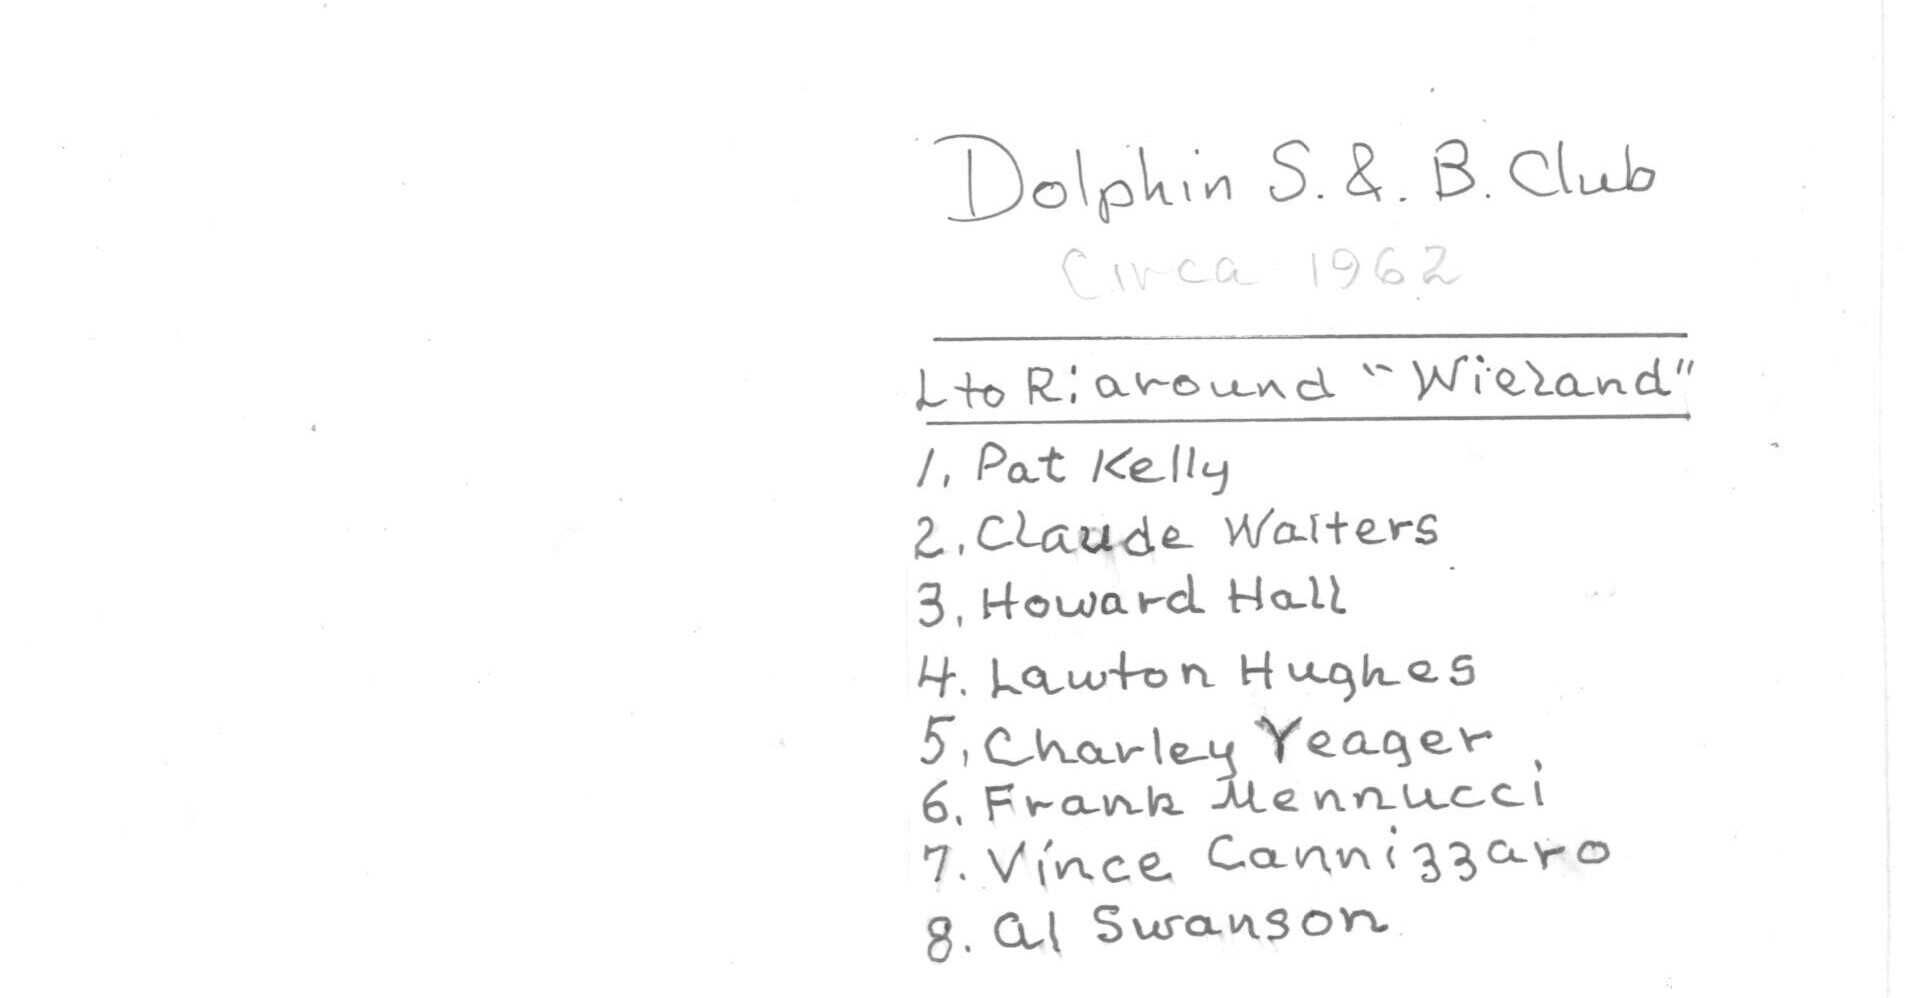 Dolphin S. & B. Club
Circa 1962
L to R: around "Wieland"
1. Pat Kelly
2. Claude Walters
3. Howard Hall
4. Lawton Hughes
5. Charley Yeager
6. Frank Mennucci
7. Vince Cannizzaro
8. Al Swanson